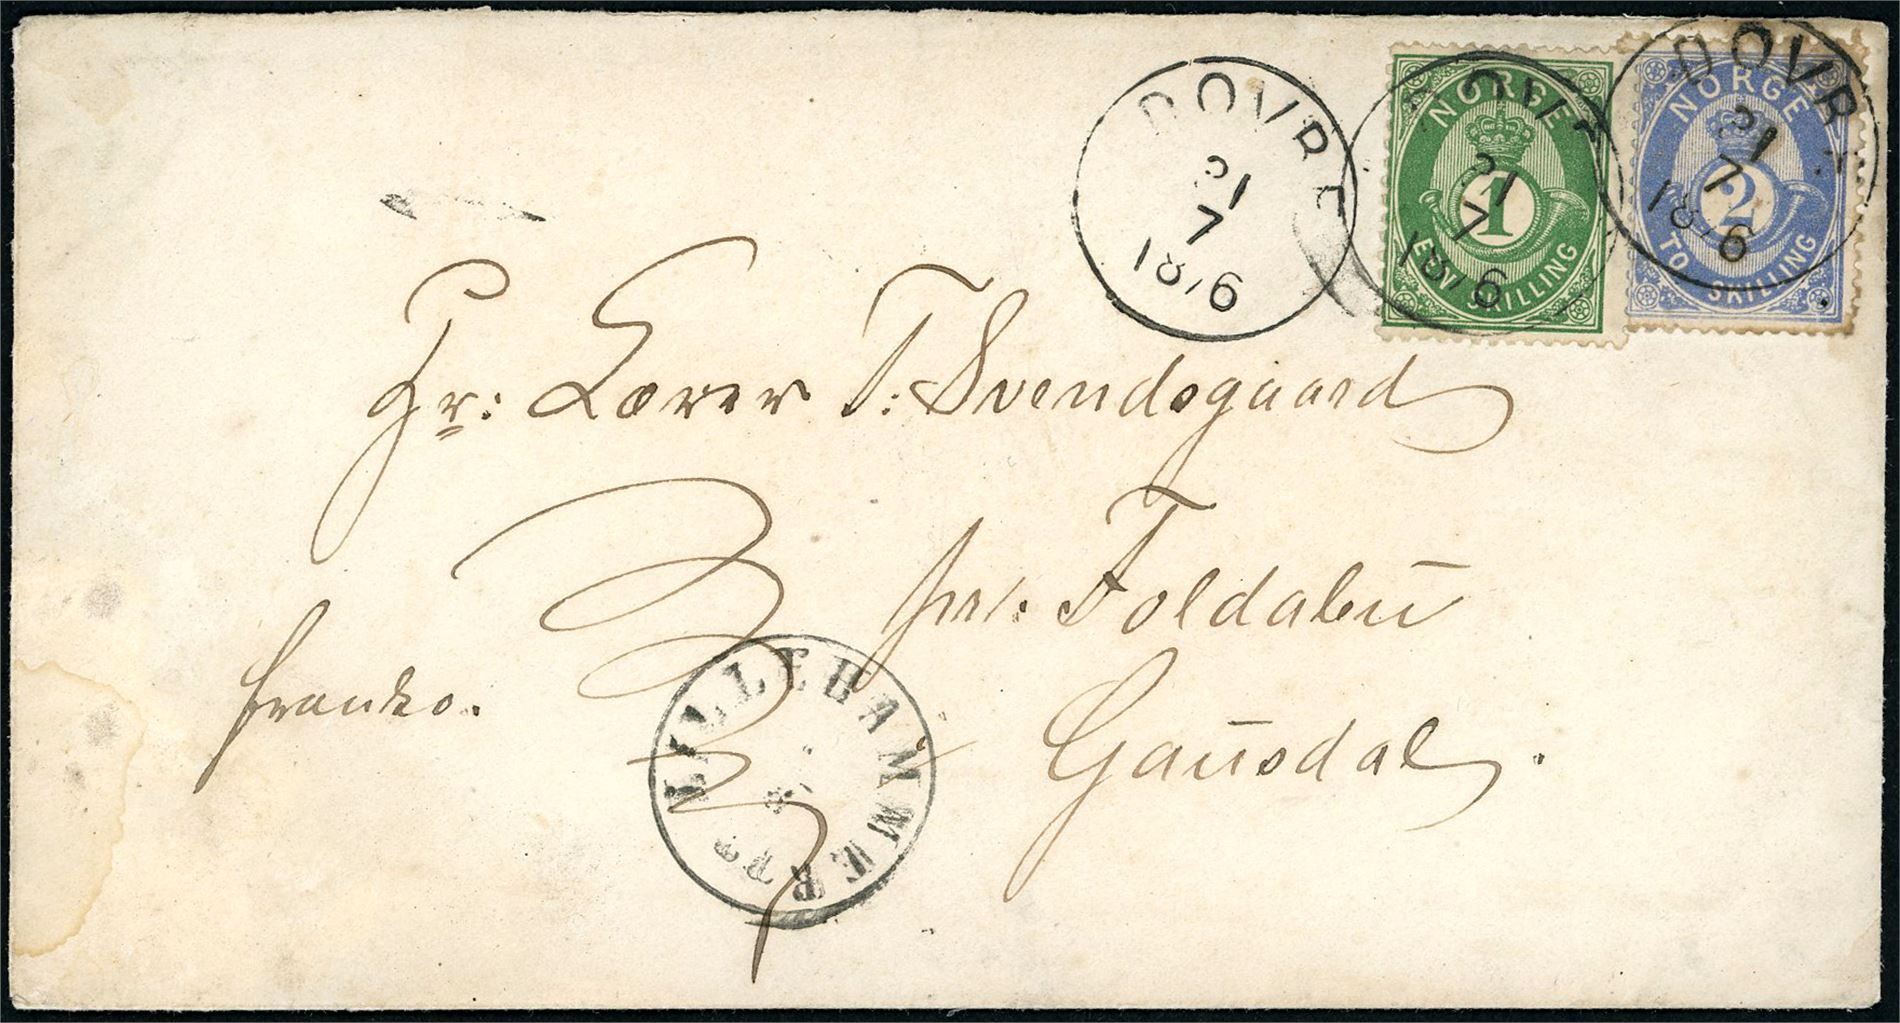 DOVRE
21
7
1876
DOVRE
21
7
1876
DOVRE
21
7
1876
NORGE
1
EN SKILLING
NORGE
2
TO SKILLING
Hr: Lærer T: Svendsgaard
pr: Foldabu
franko.
Gausdal.
LILLEHAMMER